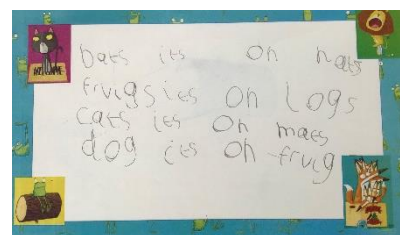 bats its on hats
frugs its on Logs
cats its on mats
dog its on frug